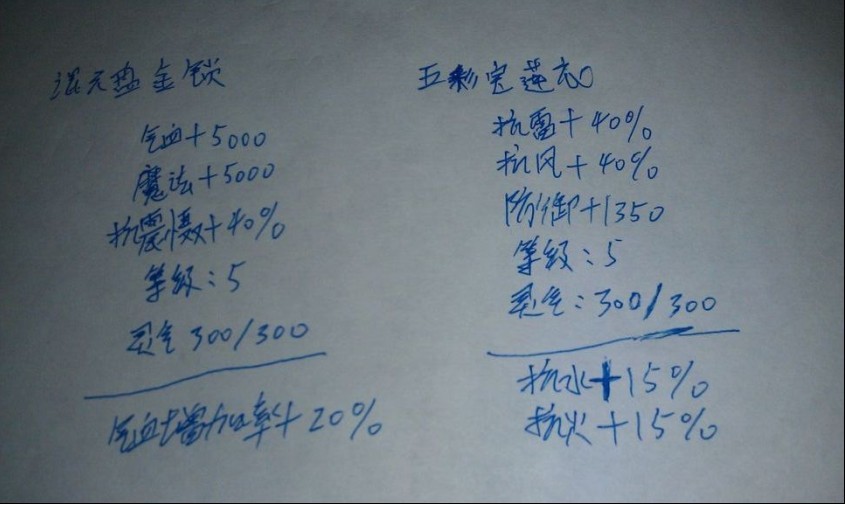 混元盘金锁
气血+5000
魔法+5000
抗震慑+40%
等级:5
灵气 300/300
气血增加率+20%
五彩宝莲芯
抗雷+40%
抗风+40%
防御+1350
等级:5
灵气:300/300
抗水+15%
抗火+15%